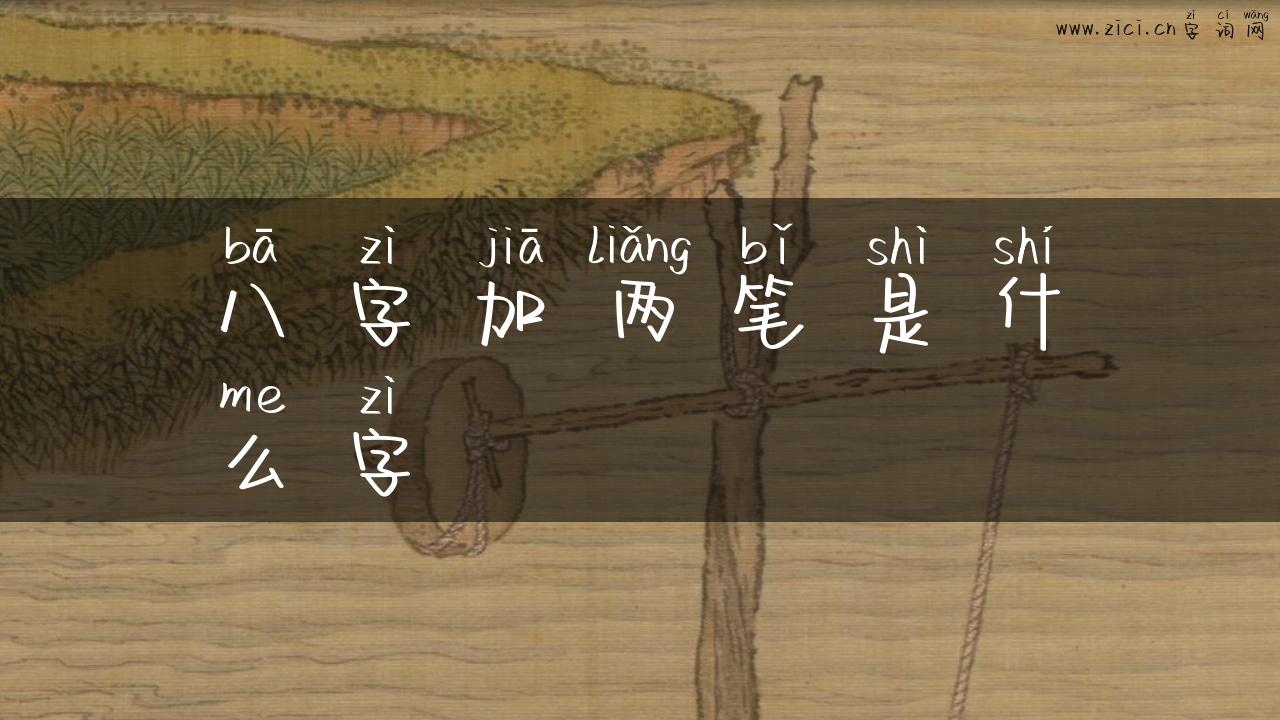 zì cí wǎng
www.zici.cn字词网
bā zì jiā liǎng bǐ shì shí
八字加两笔是什
me zì
么字